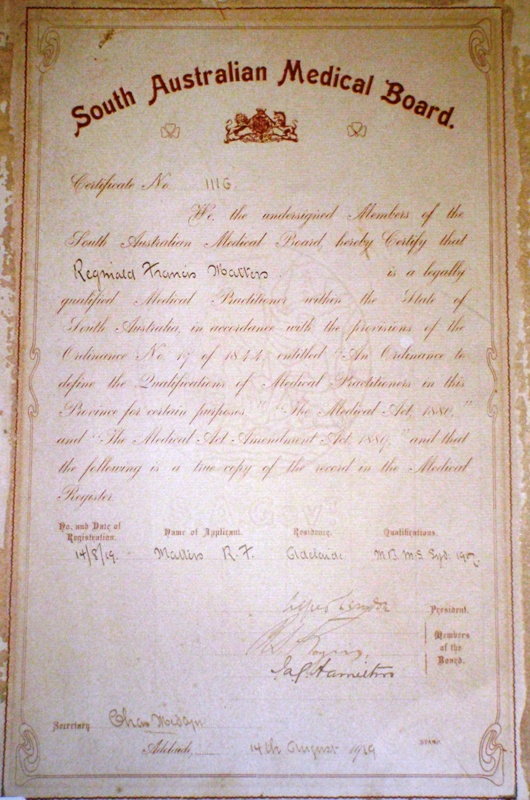 South Australian Medical Board.
Certificate No. 1116.
We, the undersigned Members of the
South Australian Medical Board, hereby Certify that
Reginald Francis Matters is a legally
qualified Medical Practitioner within the State of
South Australia, in accordance with the provisions of the
Ordinance No. 17 of 1844, entitled "An Ordinance to
define the Qualifications of Medical Practitioners in this
Province for certain purposes," "The Medical Act, 1880,"
and "The Medical Act Amendment Act, 1889," and that
the following is a true copy of the record in the Medical
Register.
No. and Date of Registration. Name of Applicant. Residence. Qualifications.
14/8/19. Matters R. F. Adelaide M.B. M.S. Syd. 1907
President.
Members of the Board.
Jas. Hamilton
Secretary Chas
Adelaide, 14th August 1919